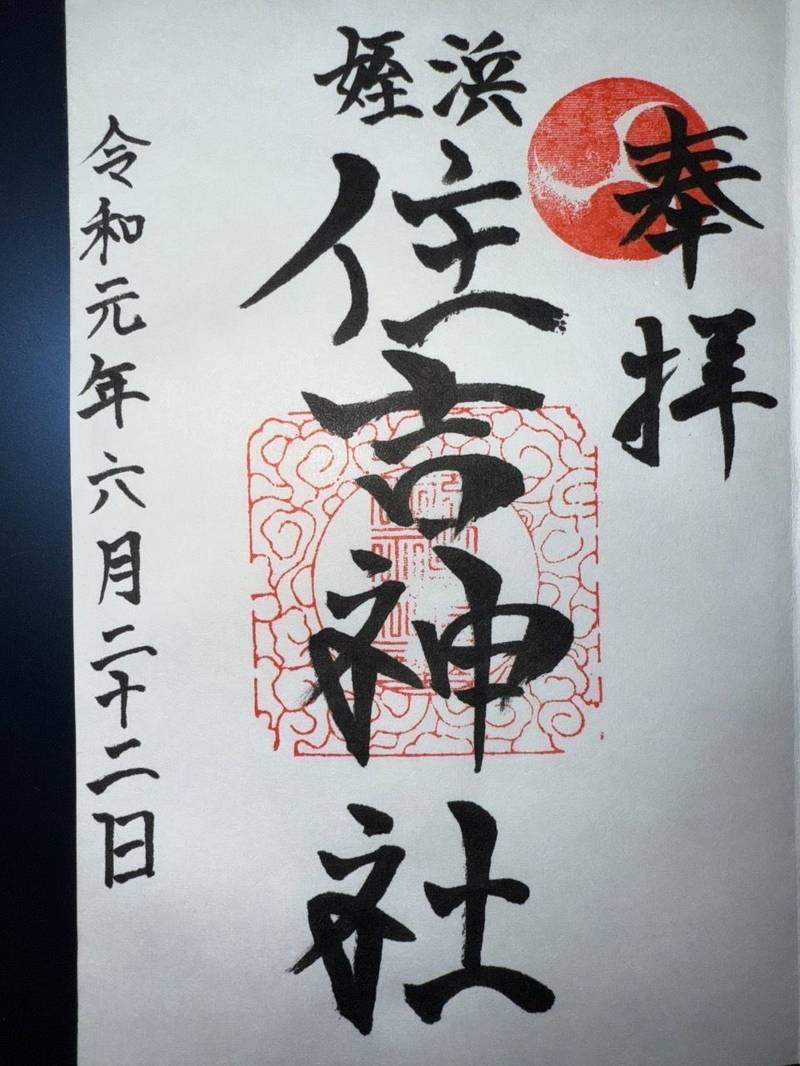 奉拝
姪浜
住吉神社
令和元年六月二十二日